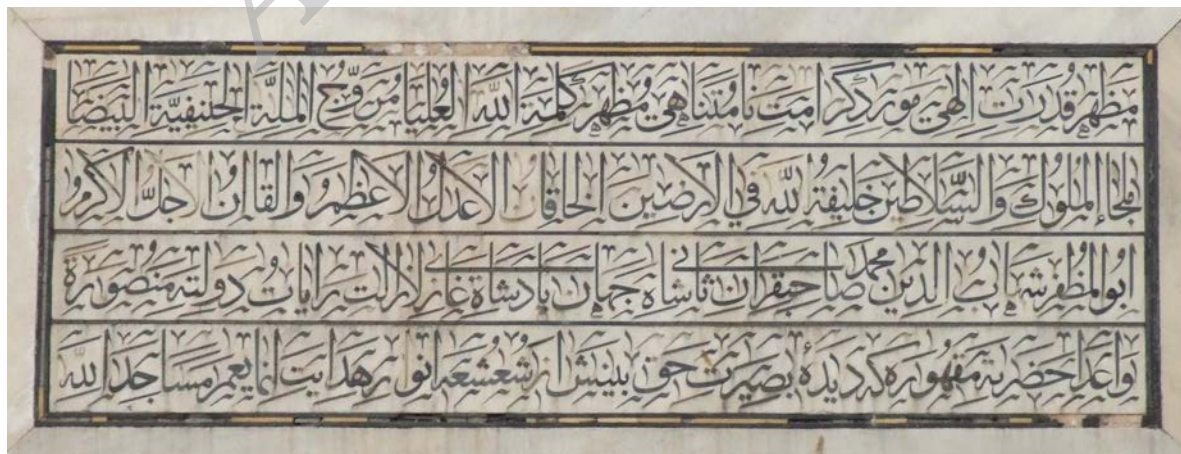 مظهر قدرت الهی مورد کرامت نامتناهی مظهر کلمة الله العلیا مروج الملة الحنیفیة البیضا
ملجاء الملوک والسلاطین خلیفة الله فی الارضین الخاقان الاعدل الاعظم والقاان الاجل الاکرم
ابو المظفر شهاب الدین محمد صاحبقران ثانی شاه جهان بادشاه غازی لازالت رایات دولته منصورة
و اعداء حضرته مقهورة که دیدهٔ بصیرت حق بینش از شعشعه انوار هدایت انما یعمر مساجد الله